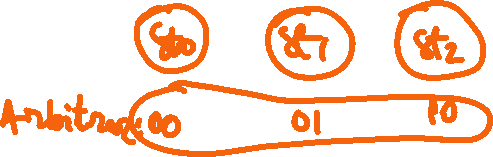 St0 St1 St2
Arbitrary: 00 01 10